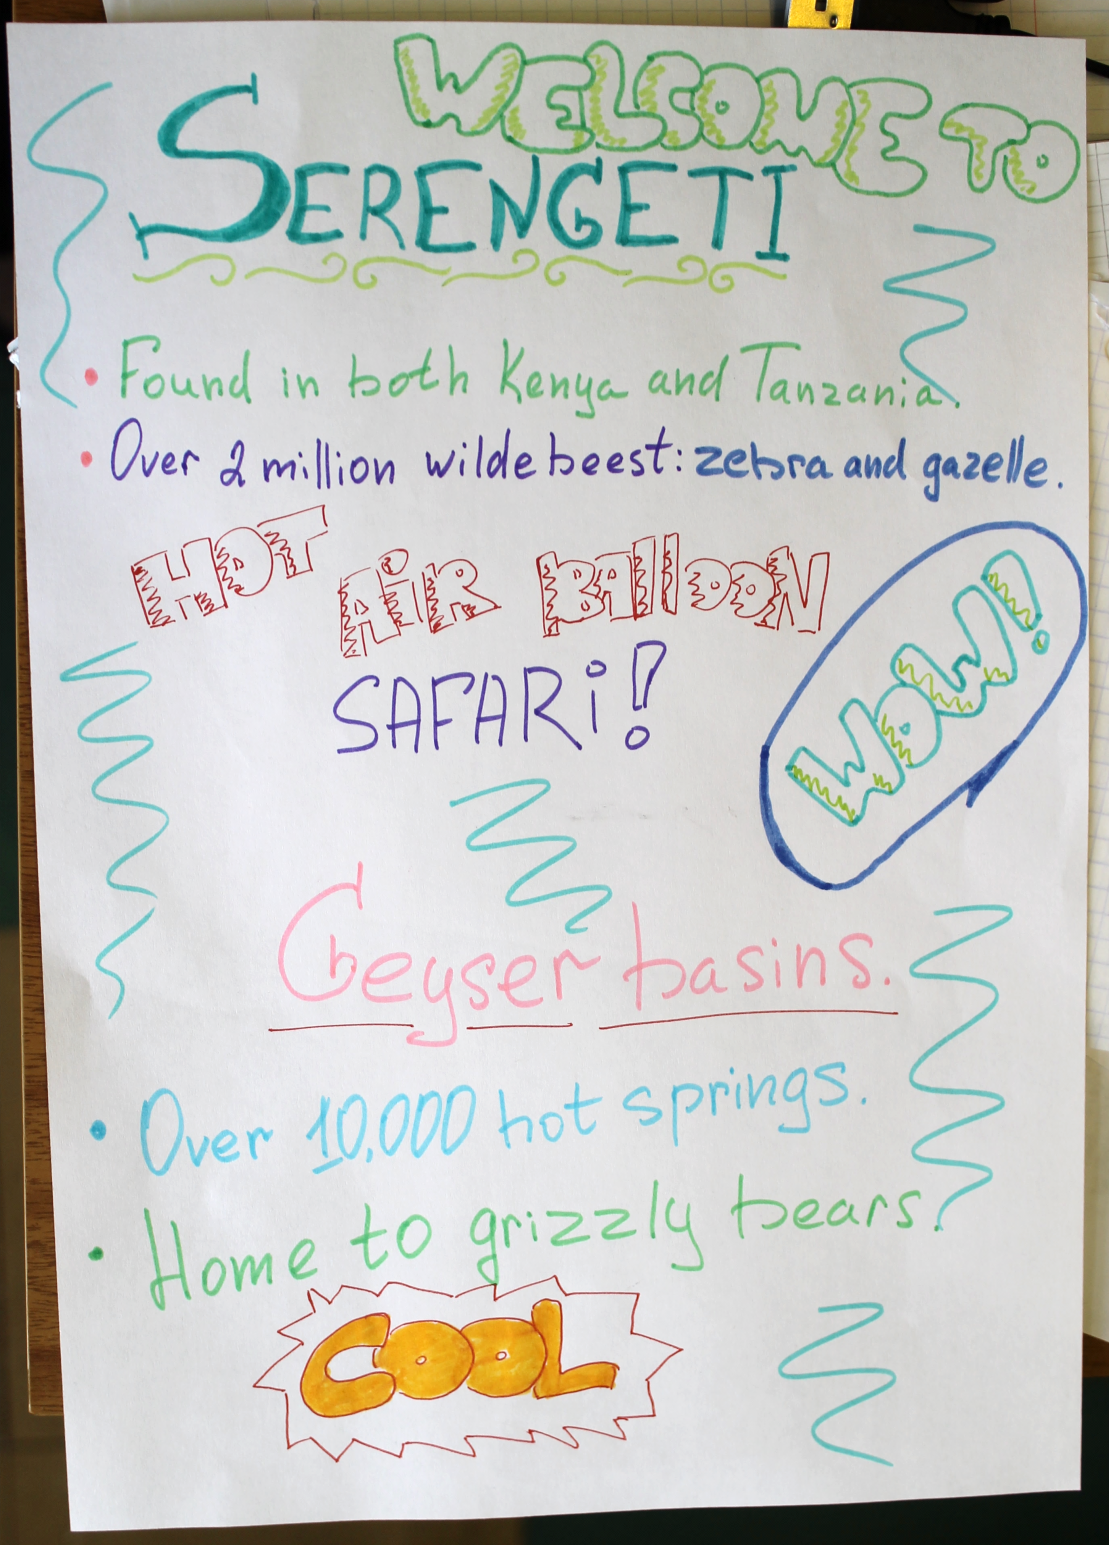 WELCOME TO
SERENGETI
• Found in both Kenya and Tanzania.
• Over 2 million wildebeest: zebra and gazelle.
HOT AiR BAllOON
SAFARi!
WOW!
Geyser basins.
• Over 10,000 hot springs.
• Home to grizzly bears.
COOL